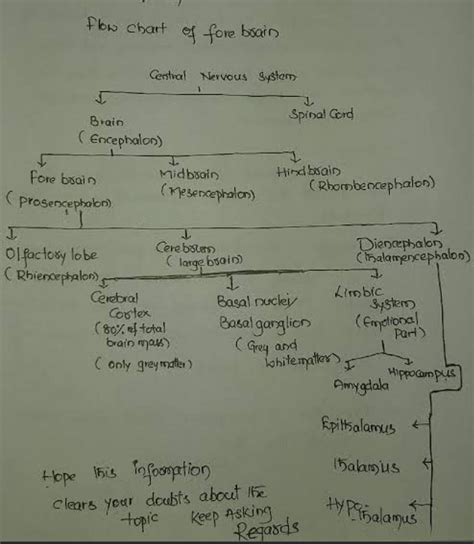 Flow chart of fore brain
Central Nervous System
Brain
(Encephalon)
Spinal Cord
Fore brain
(Prosencephalon)
Midbrain
(Mesencephalon)
Hindbrain
(Rhombencephalon)
Olfactory lobe
(Rhiencephalon)
Cerebrum
(large brain)
Diencephalon
(Thalamencephalon)
Cerebral
Cortex
(80% of total
brain mass)
(only grey matter)
Basal nuclei/
Basal ganglion
(Grey and
white matter)
Limbic
System
(Emotional
Part)
Amygdala
Hippocampus
Epithalamus
Thalamus
Hypo-
thalamus
Hope this information
clears your doubts about the
topic keep Asking
Regards